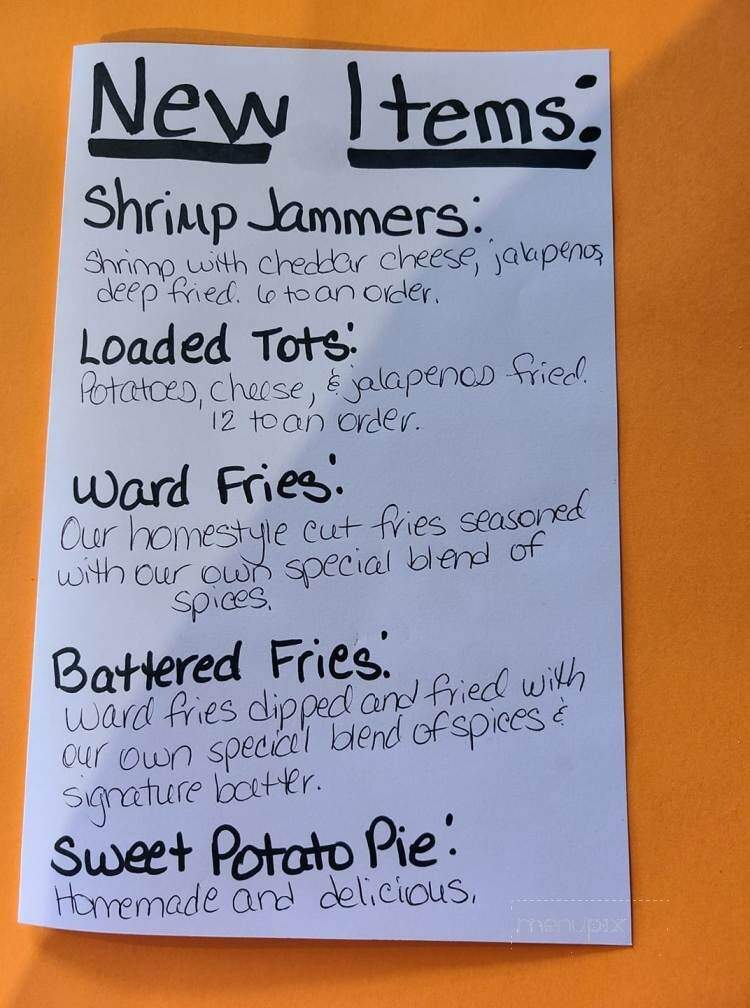 New Items:
Shrimp Jammers:
Shrimp with cheddar cheese, jalapenos
deep fried. 6 to an order.
Loaded Tots:
Potatoes, cheese, & jalapenos fried.
12 to an order.
Ward Fries:
Our homestyle cut fries seasoned
with our own special blend of
spices.
Battered Fries:
Ward fries dipped and fried with
our own special blend of spices &
signature batter.
Sweet Potato Pie:
Homemade and delicious.
menupix